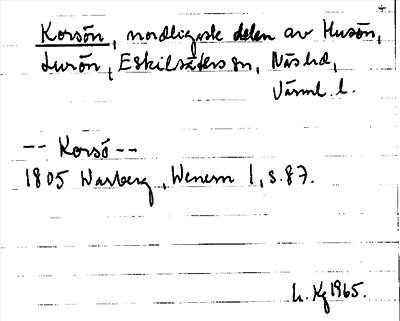 Korsön, nordligaste delen av Husön,
Lurön, Eskilsäters sn, Näs hd,
Värml. l.
-- Korsö --
1805 Warberg, Wenern 1, s. 87.
L. Kg 1965.